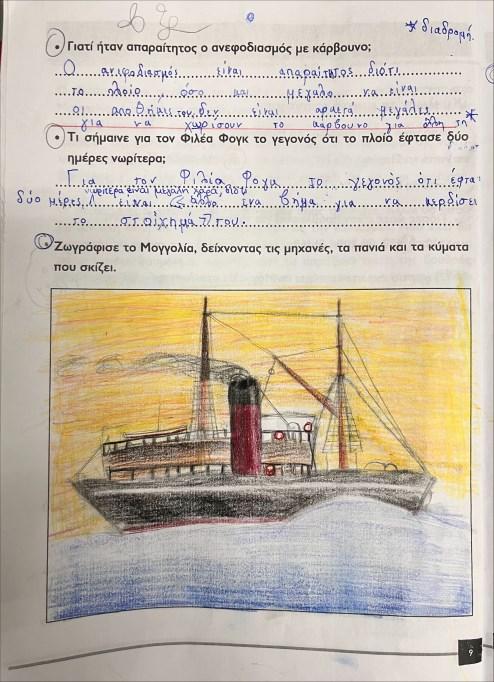 * διαδρομή.
• Γιατί ήταν απαραίτητος ο ανεφοδιασμός με κάρβουνο;
Ο ανεφοδιασμός είναι απαραίτητος διότι
το πλοίο, όσο και μεγάλο να είναι
οι αποθήκες του δεν είναι αρκετά μεγάλες
για να χωρίσουν το κάρβουνο για όλη τη *
• Τι σήμαινε για τον Φιλέα Φογκ το γεγονός ότι το πλοίο έφτασε δύο
ημέρες νωρίτερα;
Για τον Φιλέα Φογκ το γεγονός ότι έφτα
νωρίτερα είναι μεγάλη χαρά, διότι
δύο μέρες είναι άλλο ένα βήμα για να κερδίσει
το στοίχημά του.
• Ζωγράφισε το Μογγολία, δείχνοντας τις μηχανές, τα πανιά και τα κύματα
που σκίζει.
9